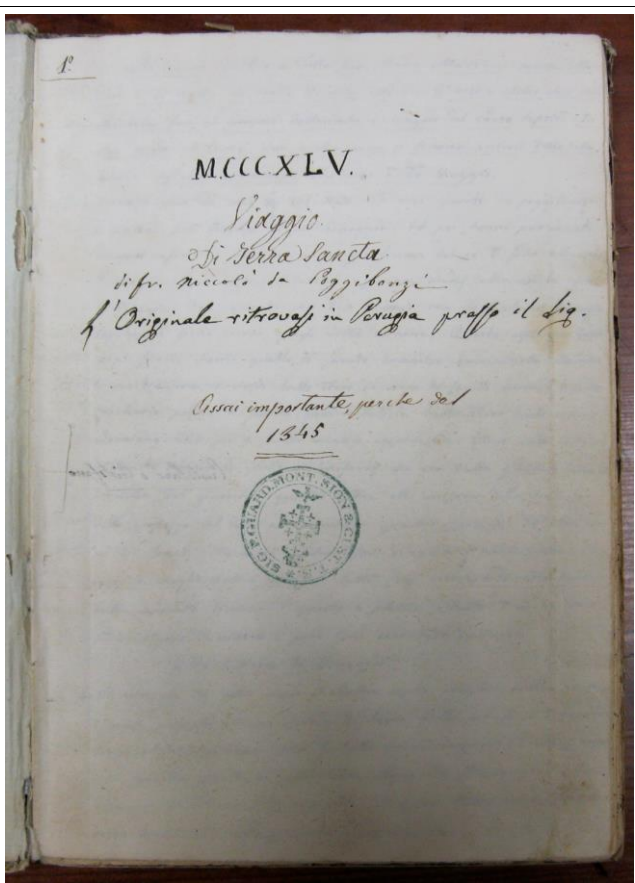 1º
M.CCC.XLV.
Viaggio
Di Terra Sancta
di fr. Niccolò da Poggibonzi
L'Originale ritrovasi in Perugia presso il Sig.
Assai importante, perche del
1345
SIG. P. GUARD. MONT. SION & CUST. T. S.